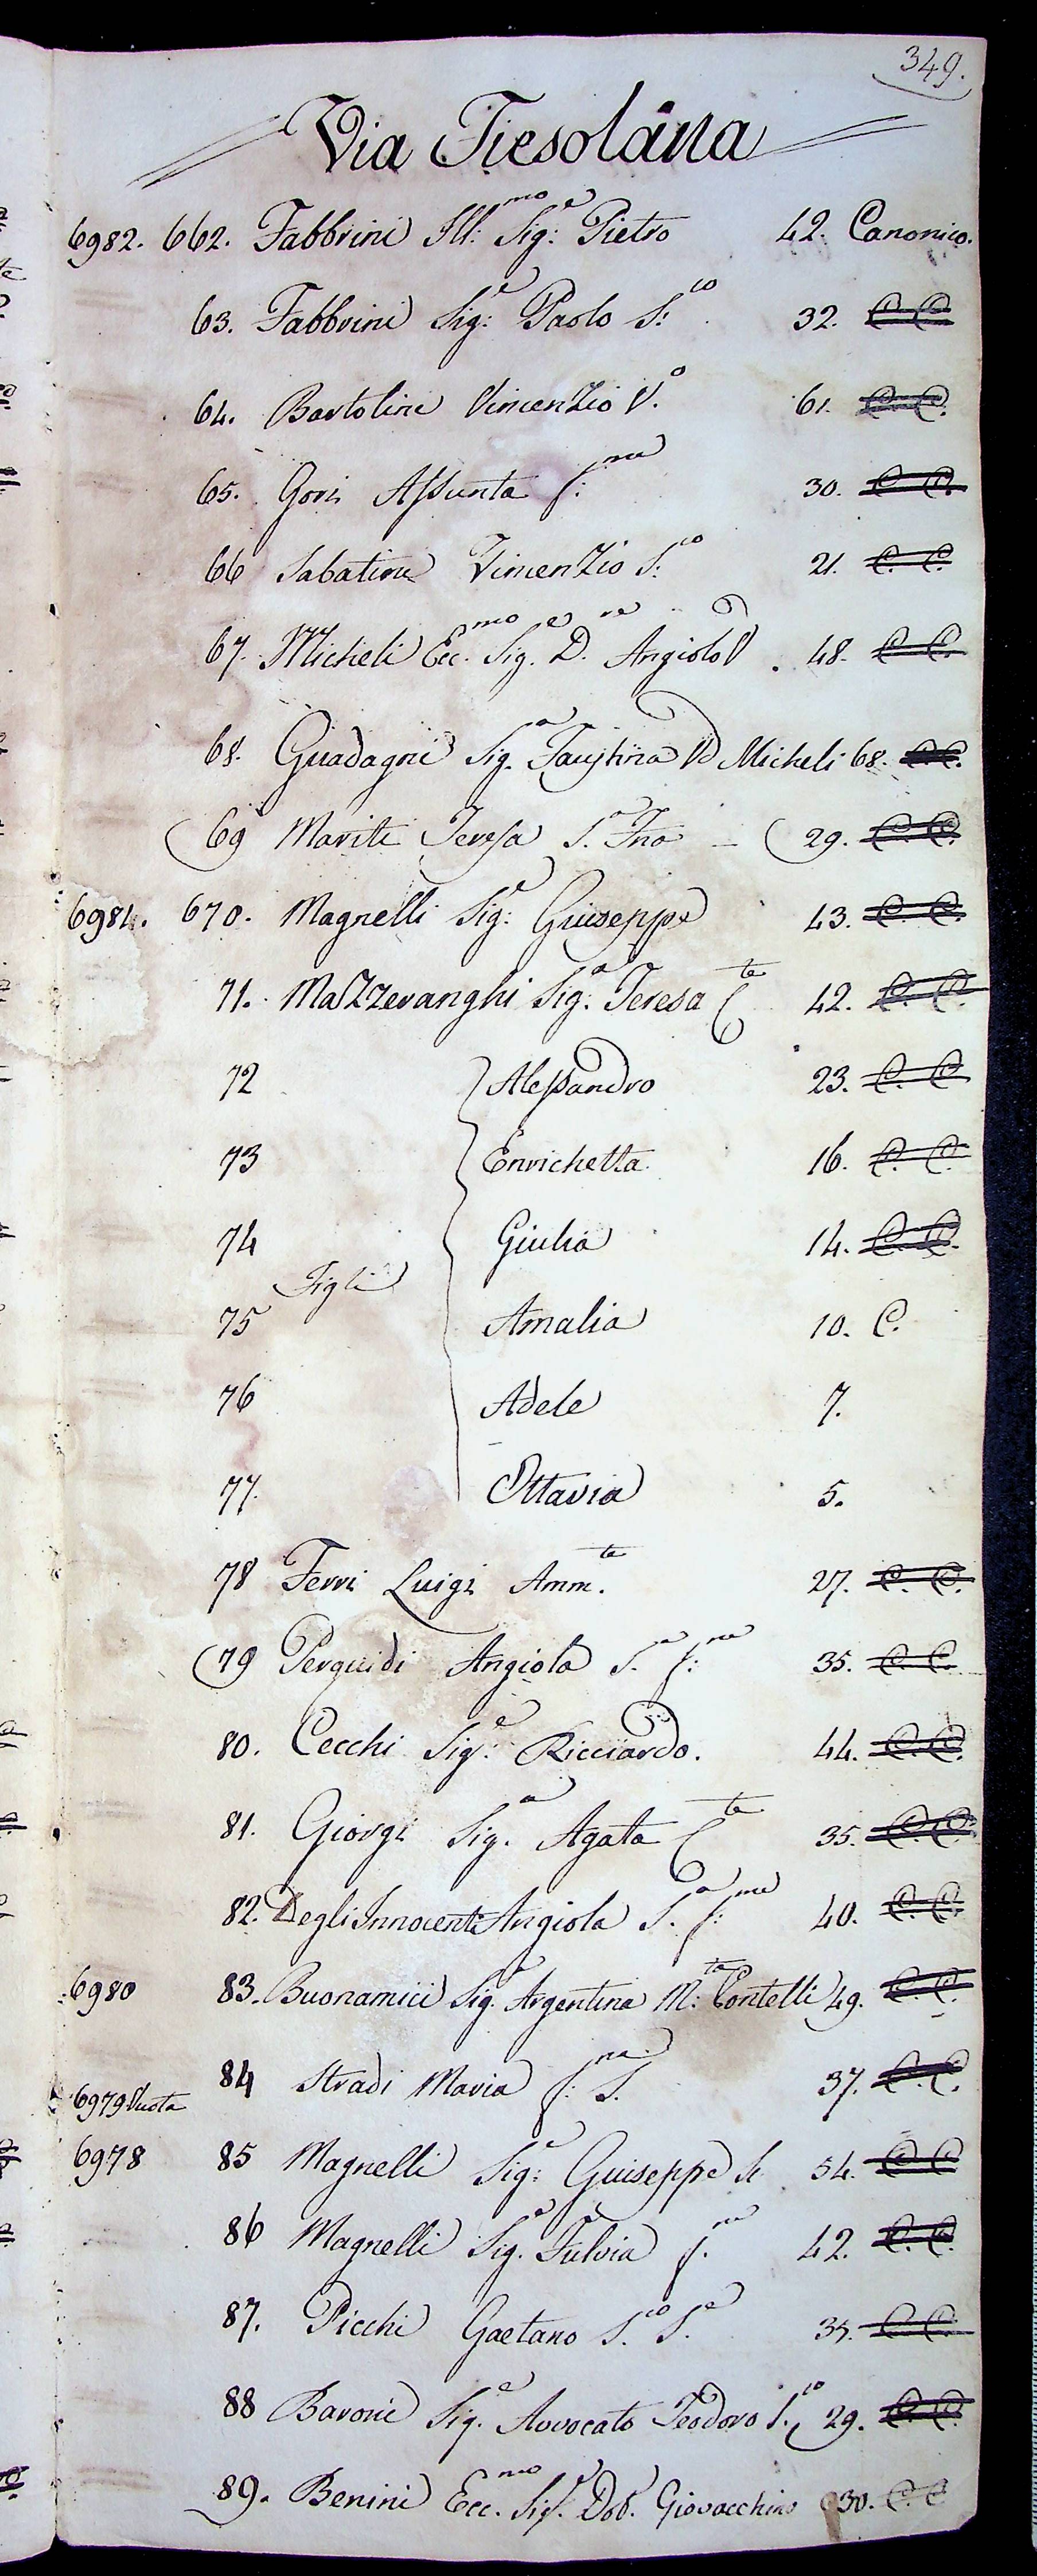 349.
Via Fiesolana
6982. 662. Fabbrini Ill:mo Sig:e Pietro 42. Canonico.
63. Fabbrini Sig:e Paolo S:co 32. C. C.
64. Bartolini Vincenzio V.o 61. C. C.
65. Gori Assunta f:na 30. C. C.
66 Sabatini Vincenzio S:co 21. C. C.
67. Micheli Ecc.mo Sig.e D.re Angiolo V 48. C. C.
68. Guadagni Sig.a Faustina Vd Micheli 68. C. C.
(69 Mariti Teresa S.a Fna (29. C. C.
6981. 670. Magnelli Sig:e Giuseppe 43. C. C.
71. Mazzeranghi Sig:a Teresa C.te 42. C. C.
72 Alessandro 23. C. C.
73 Enrichetta 16. C. C.
74 Giulia 14. C. C.
Figli
75 Amalia 10. C.
76 Adele 7.
77. Ottavia 5.
78 Ferri Luigi Amm.te 27. C. C.
(79 Perguidi Angiola S.a f:na 35. C. C.
80. Cecchi Sig:e Ricciardo. 44. C. C.
81. Giorgi Sig.a Agata C.te 35. C. C.
82. Degli Innocenti Angiola S.a f:na 40. C. C.
6980 83. Buonamici Sig.a Argentina M:ta Contelli 49. C. C.
84 Stradi Maria f:na S. 37. C. C.
6979 Vuota
6978 85 Magnelli Sig:e Giuseppe S. 54. C. C.
86 Magnelli Sig.a Fulvia f.na 42. C. C.
87. Picchi Gaetano S.co S.e 35. C. C.
88 Baroni Sig.e Avvocato Teodoro S.co 29. C. C.
89. Benini Ecc.mo Sig.e Dot. Giovacchino 30. C. C